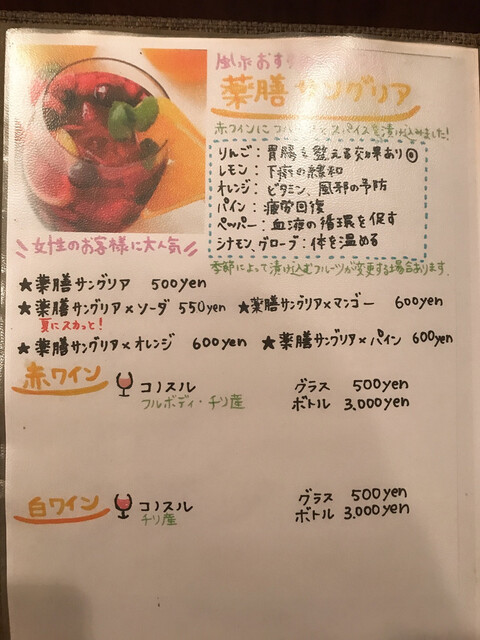 風水おす
薬膳サングリア
赤ワインにフルーツとスパイスを漬け込みました!
りんご：胃腸を整える効果あり◎
レモン：下痢の緩和
オレンジ：ビタミン、風邪の予防
パイン：疲労回復
ペッパー：血液の循環を促す
シナモン、グローブ：体を温める
女性のお客様に大人気
季節によって漬け込むフルーツが変更する場合あります。
★薬膳サングリア 500yen
★薬膳サングリア×ソーダ 550yen ★薬膳サングリア×マンゴー 600yen
夏にスカッと!
★薬膳サングリア×オレンジ 600yen ★薬膳サングリア×パイン 600yen
赤ワイン コノスル グラス 500yen
フルボディ・チリ産 ボトル 3,000yen
白ワイン コノスル グラス 500yen
チリ産 ボトル 3,000yen